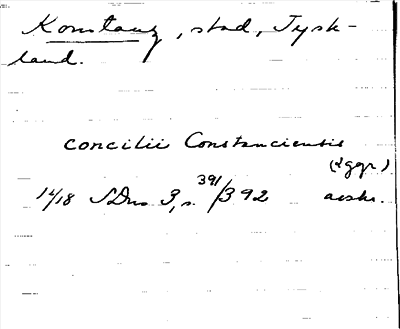 Konstanz, stad, Tysk-
land.
concilii Constanciensis
(2 ggr.)
14/18 SDns 3, s. 391/392 avskr.